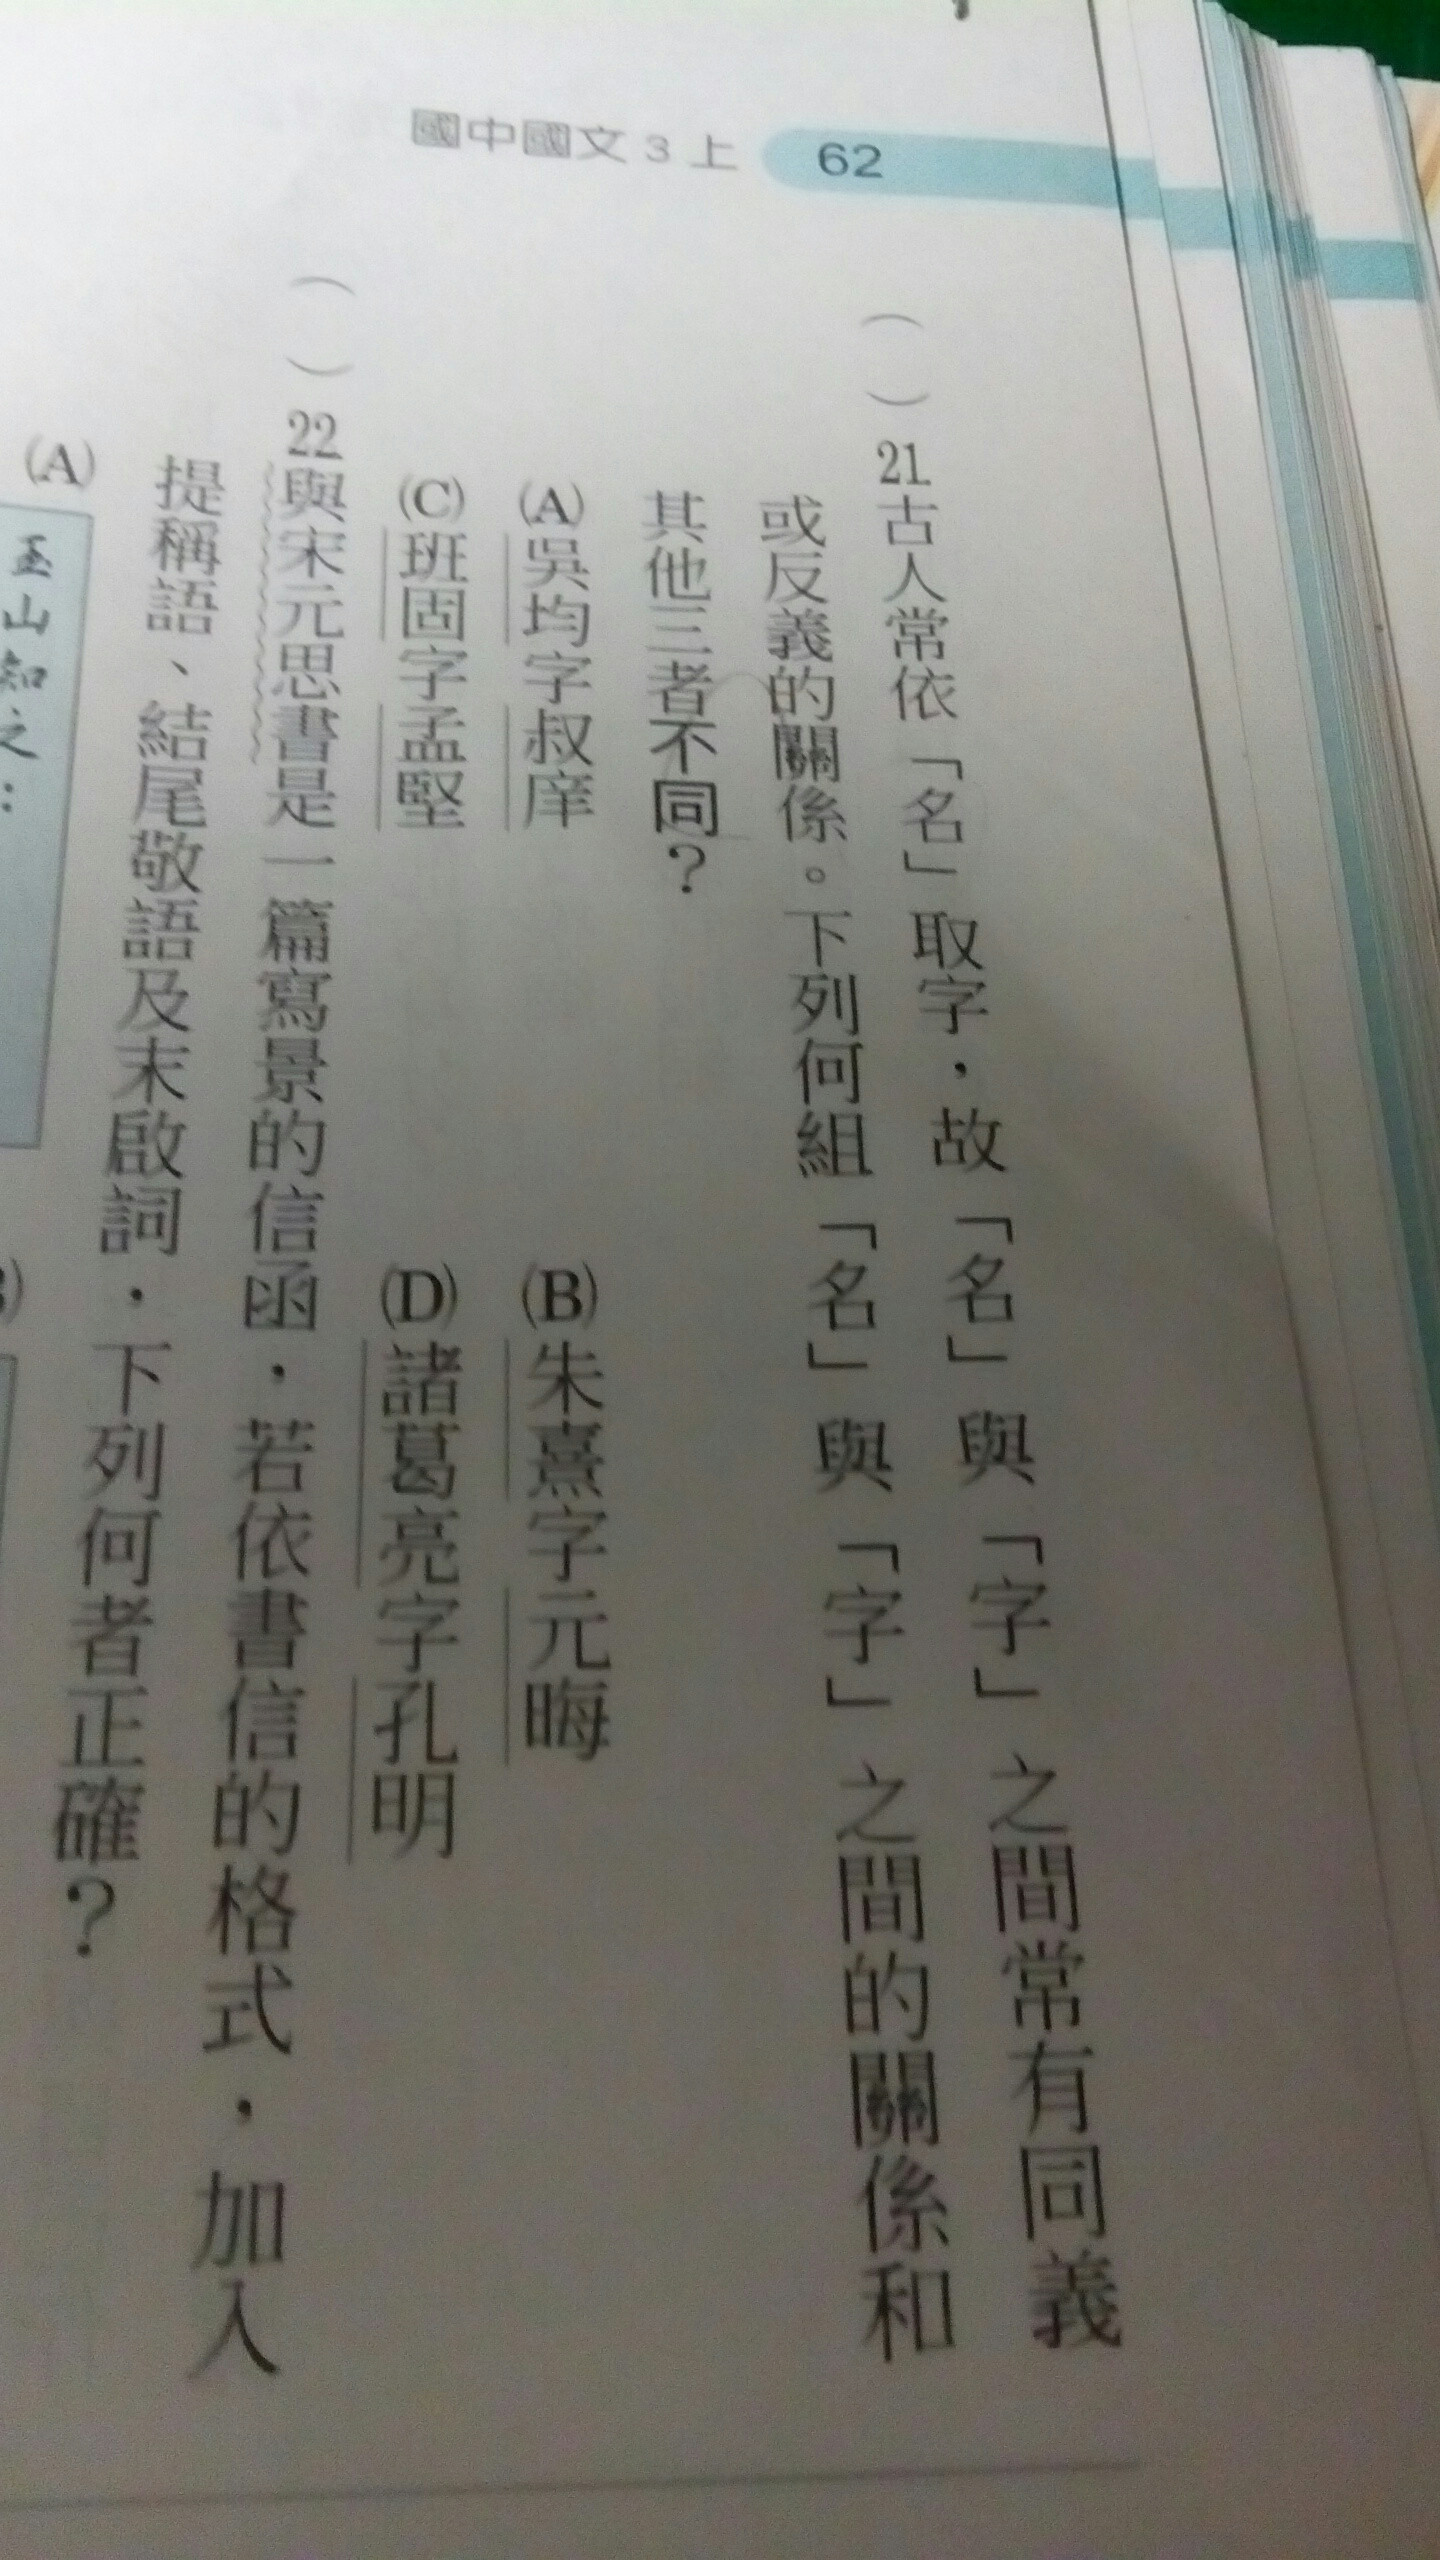 國中國文3上 62
( )21古人常依「名」取字,故「名」與「字」之間常有同義
或反義的關係。下列何組「名」與「字」之間的關係和
其他三者不同?
(A)吳均字叔庠 (B)朱熹字元晦
(C)班固字孟堅 (D)諸葛亮字孔明
( )22與宋元思書是一篇寫景的信函,若依書信的格式,加入
提稱語、結尾敬語及末啟詞,下列何者正確?
(A)
山知之: